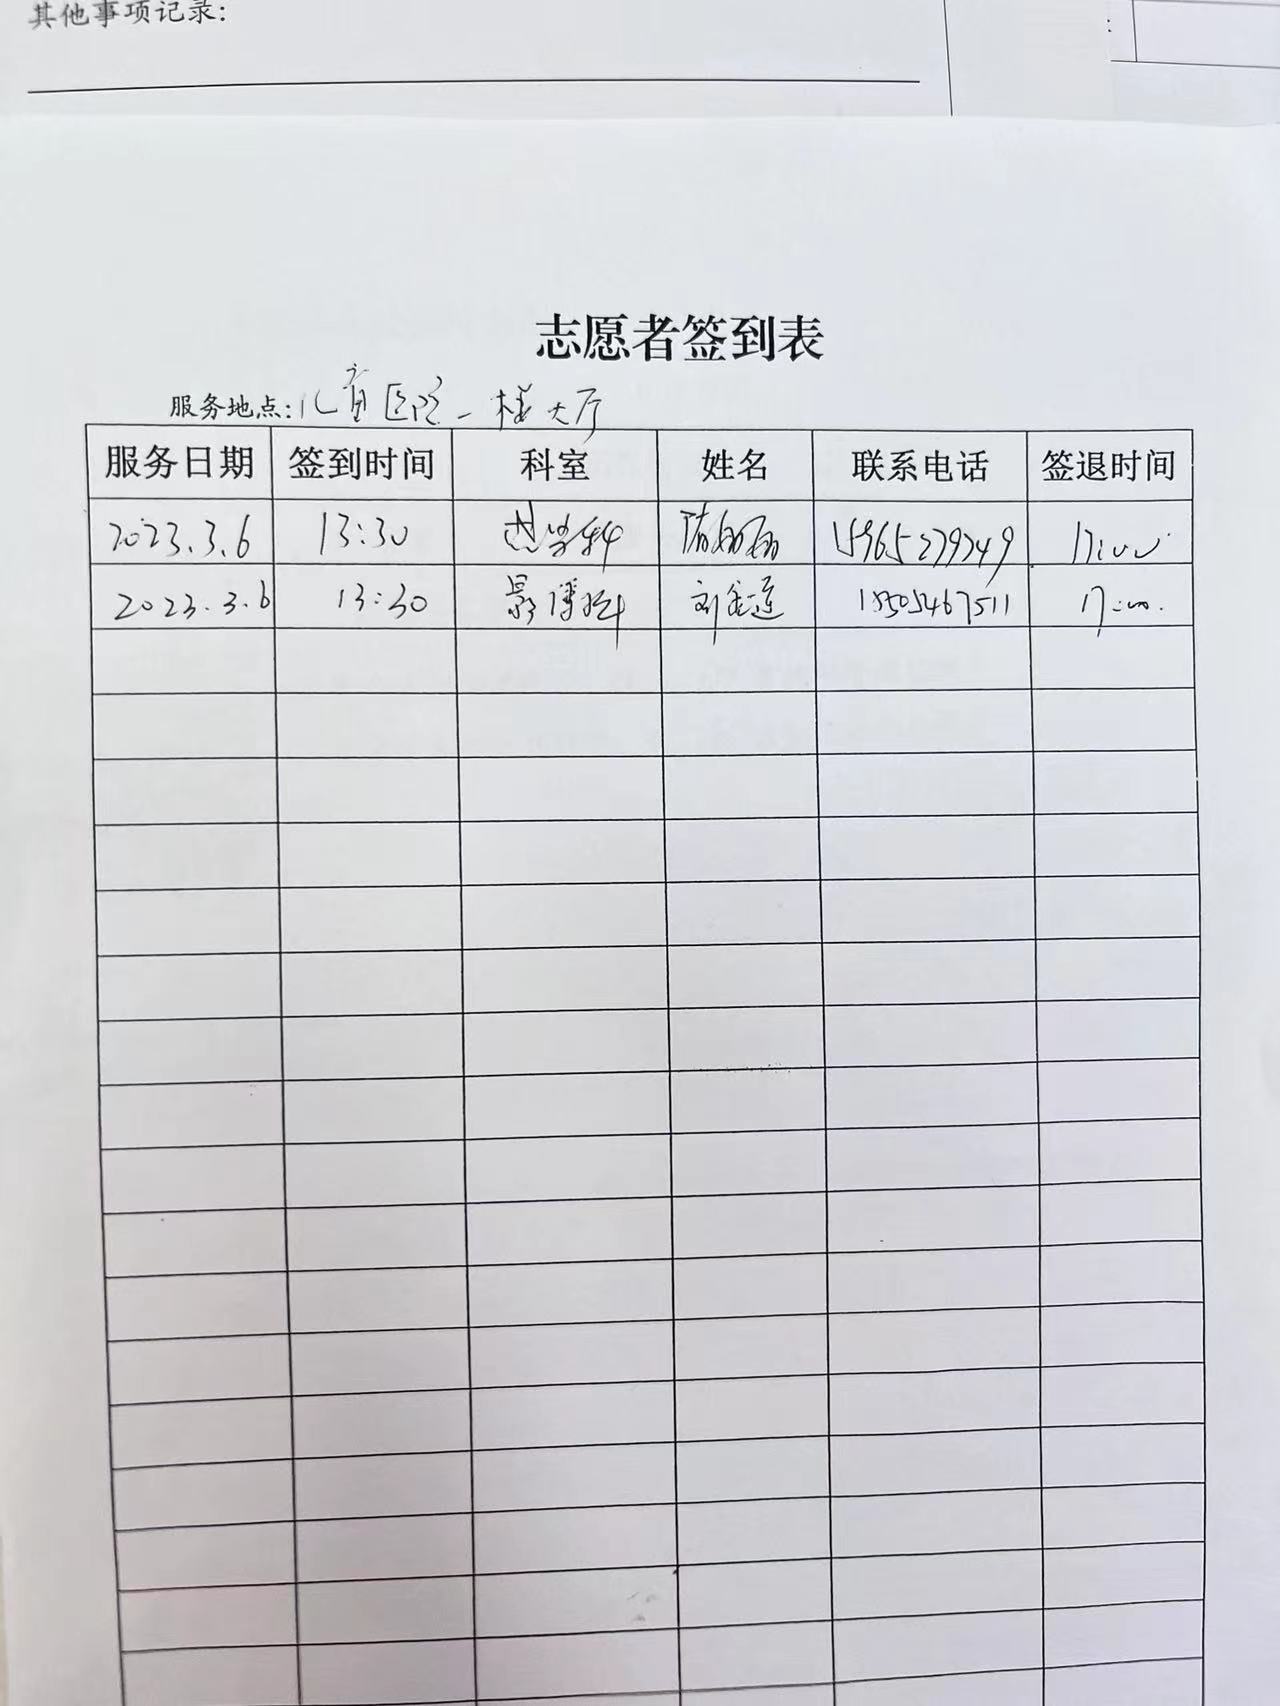 其他事项记录:
志愿者签到表
服务地点:儿童医院一楼大厅
服务日期 签到时间 科室 姓名 联系电话 签退时间
2023.3.6 13:30 17:00
2023.3.6 13:30 影像科 刘 18505467511 17:00.